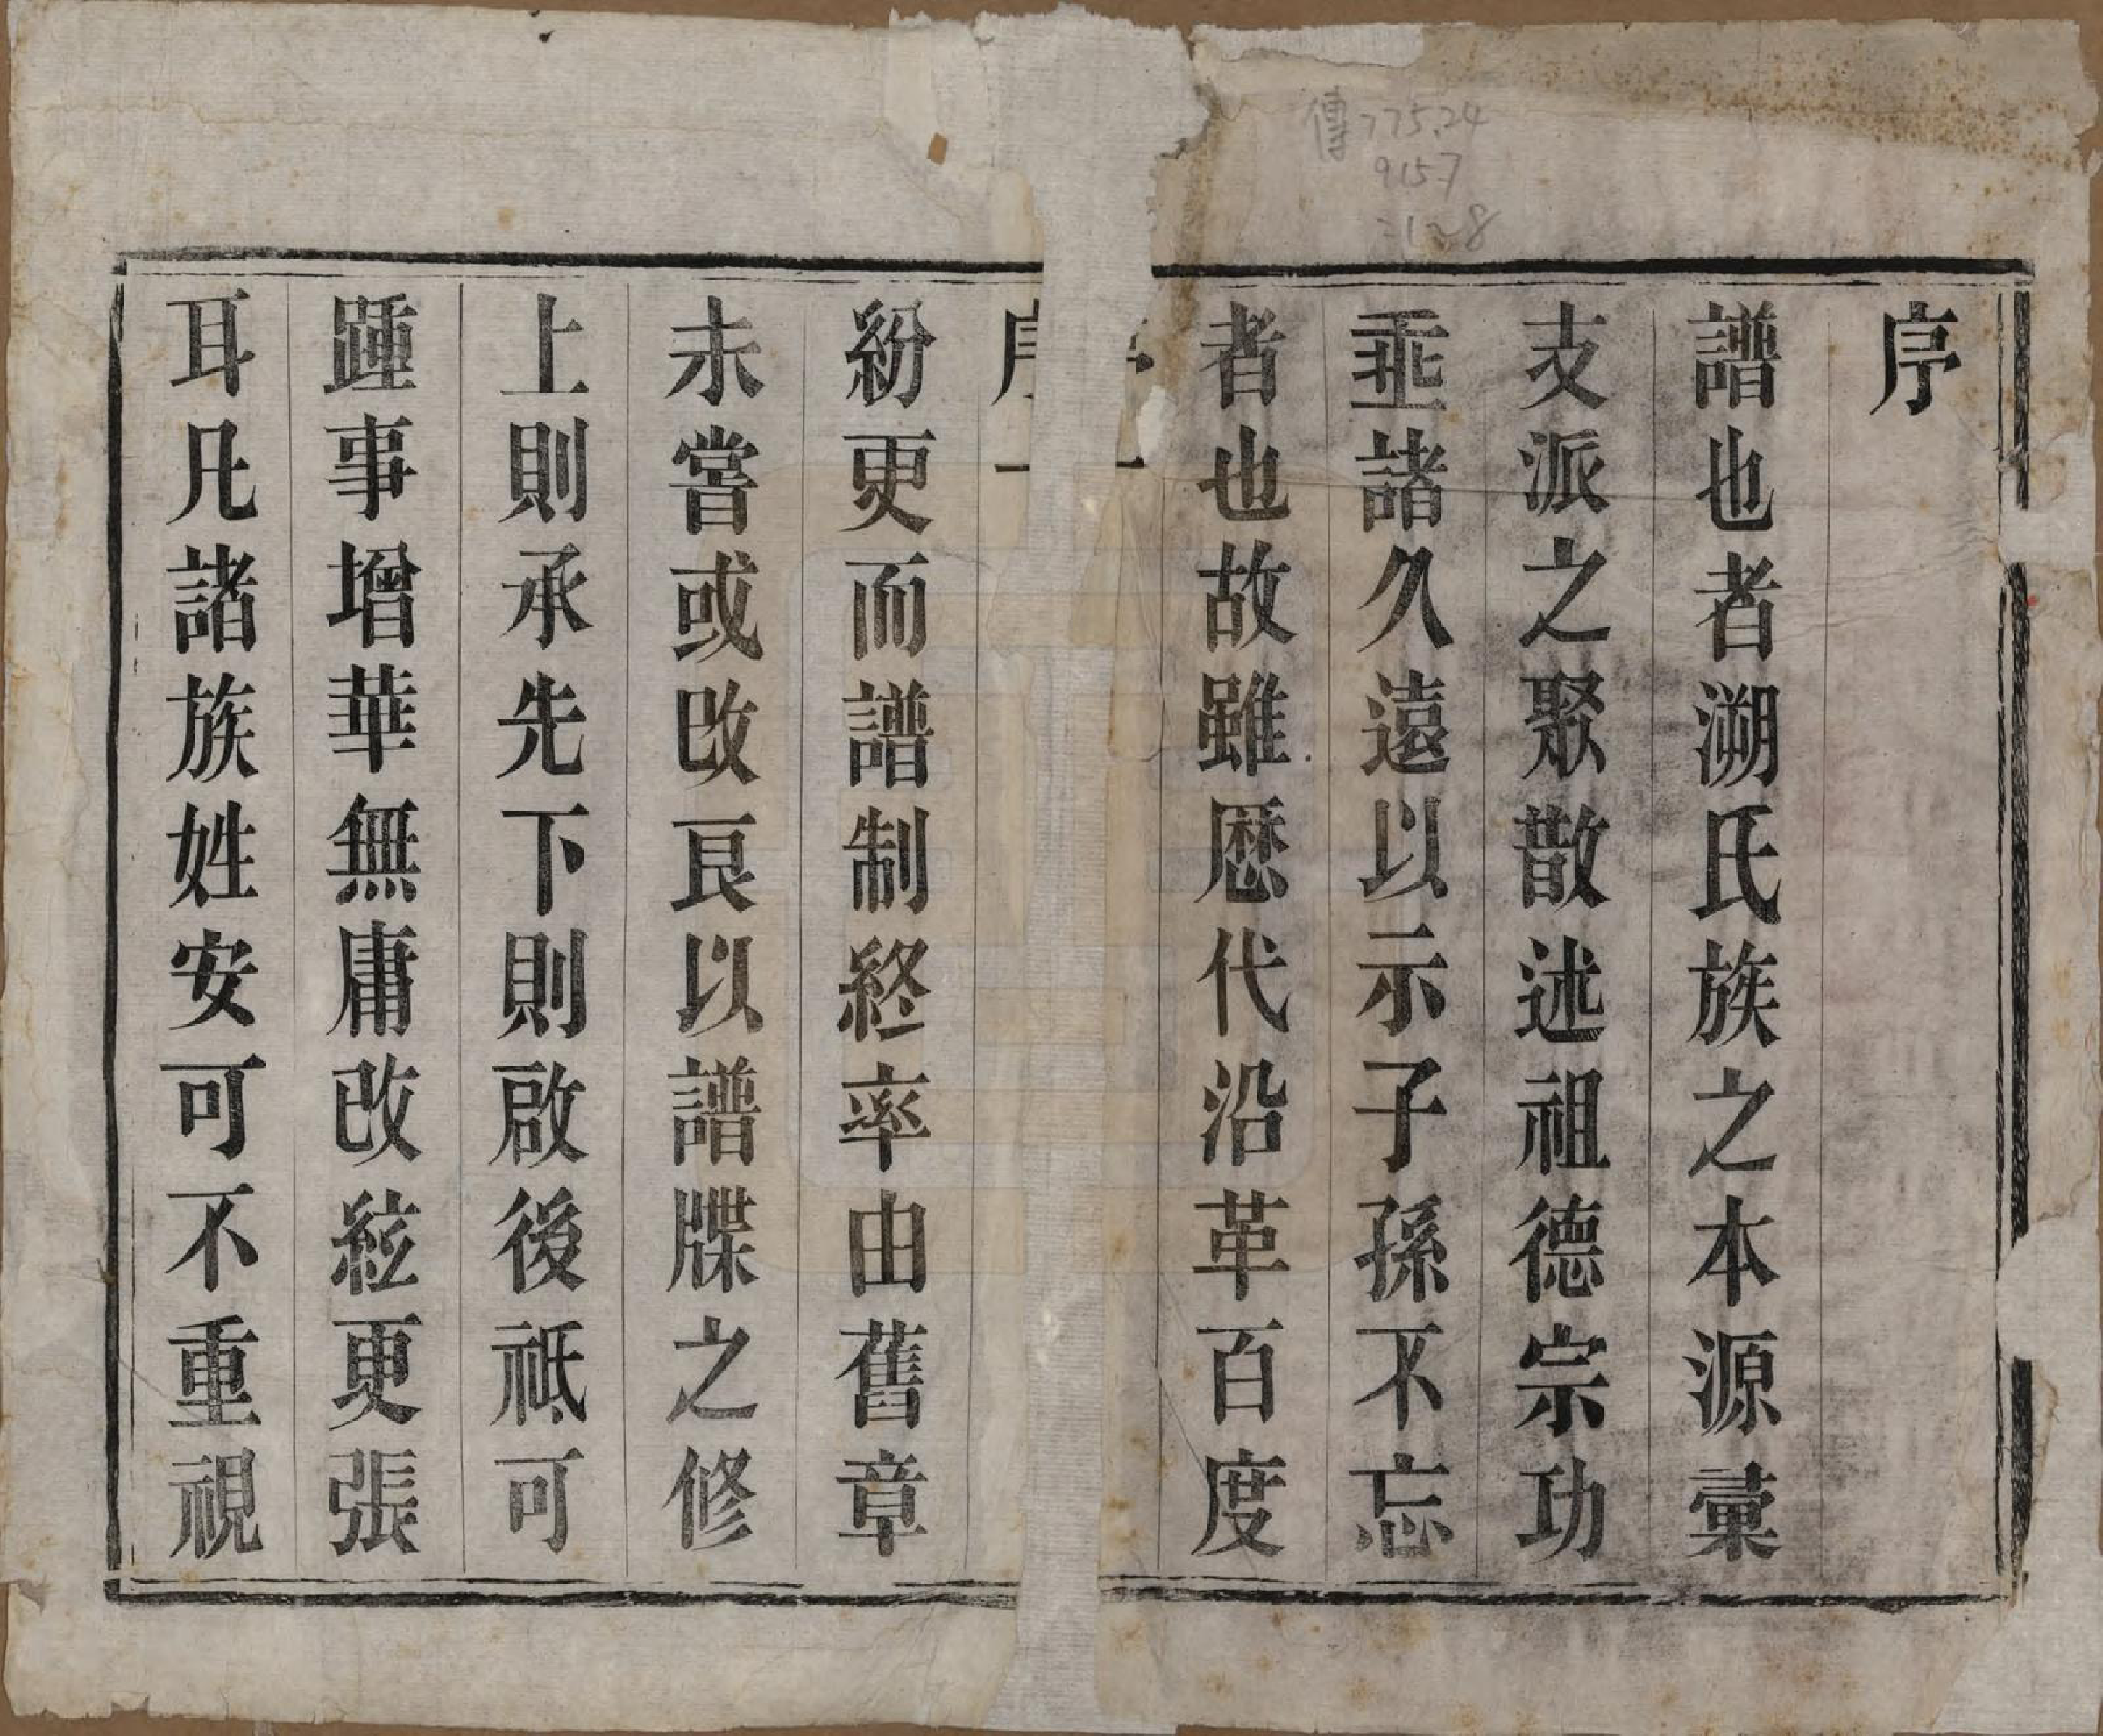 傳775.24
9157
:1~8
序
譜也者溯氏族之本源彙
支派之聚散述祖德宗功
垂諸久遠以示子孫不忘
者也故雖歴代沿革百度
序 一
紛更而譜制終率由舊章
未嘗或改良以譜牒之修
上則承先下則啟後祗可
踵事增華無庸改絃更張
耳凡諸族姓安可不重視